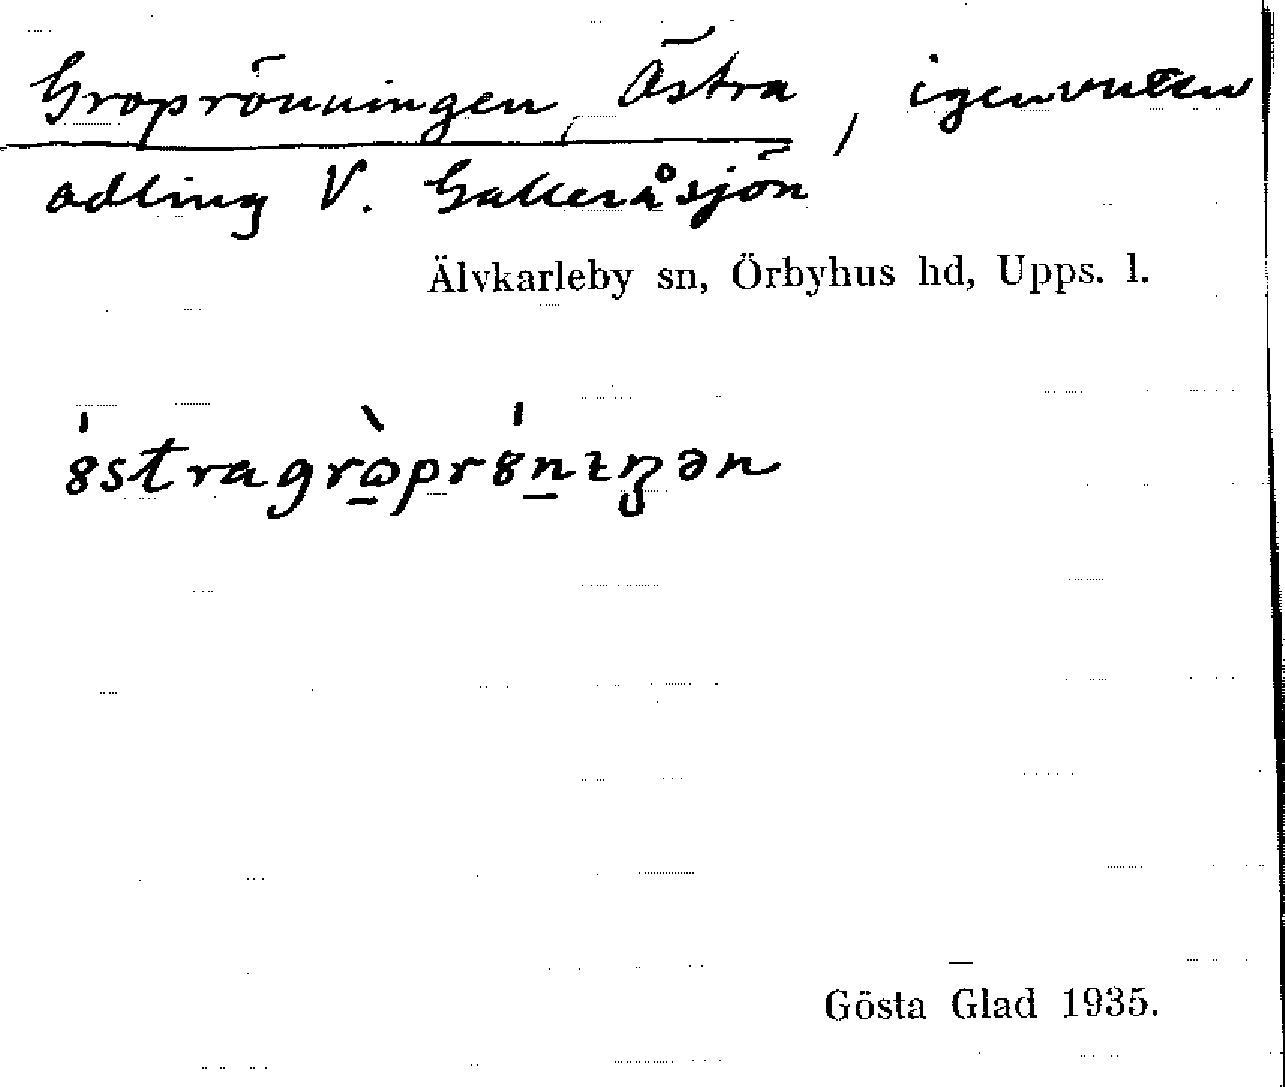 Groprönningen, Östra, igenvuxen
odling V. Gallersåsjön
Älvkarleby sn, Örbyhus hd, Upps. l.
Gösta Glad 1935.